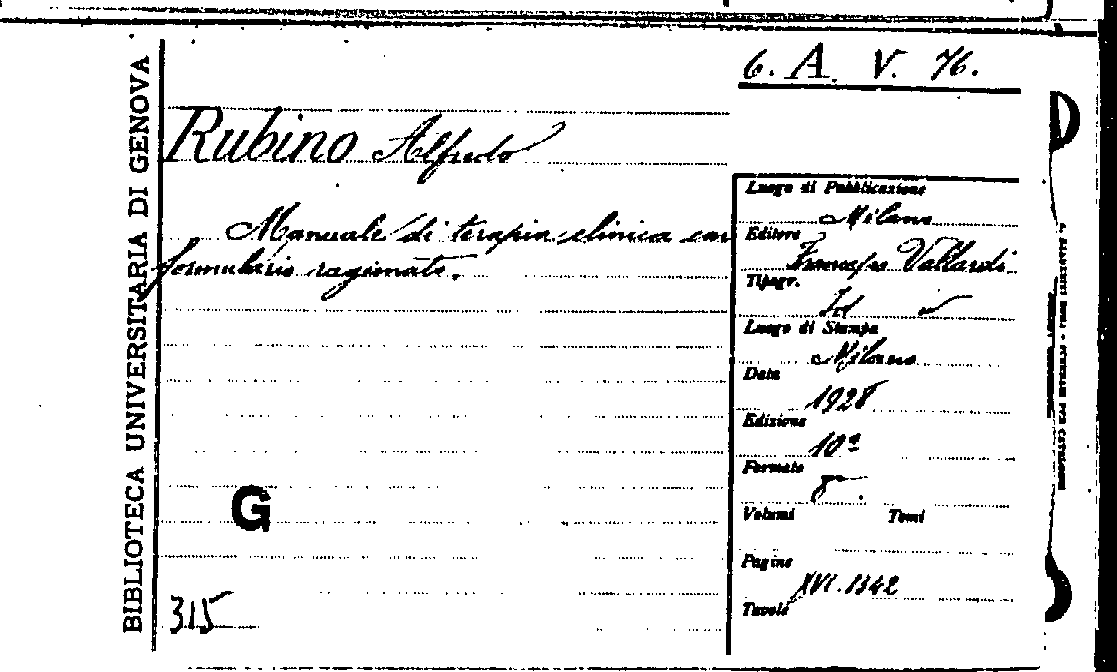 BIBLIOTECA UNIVERSITARIA DI GENOVA
6. A. V. 76.
Rubino Alfredo
Manuale di terapia clinica con
formulario ragionato.
Luogo di Pubblicazione
Milano
Editore
Francesco Vallardi
Tipogr.
Id
Luogo di Stampa
Milano
Data
1928
Edizione
10ª
Formato
8°.
Volumi Tomi
Pagine
XVI. 1342
Tavole
G
315